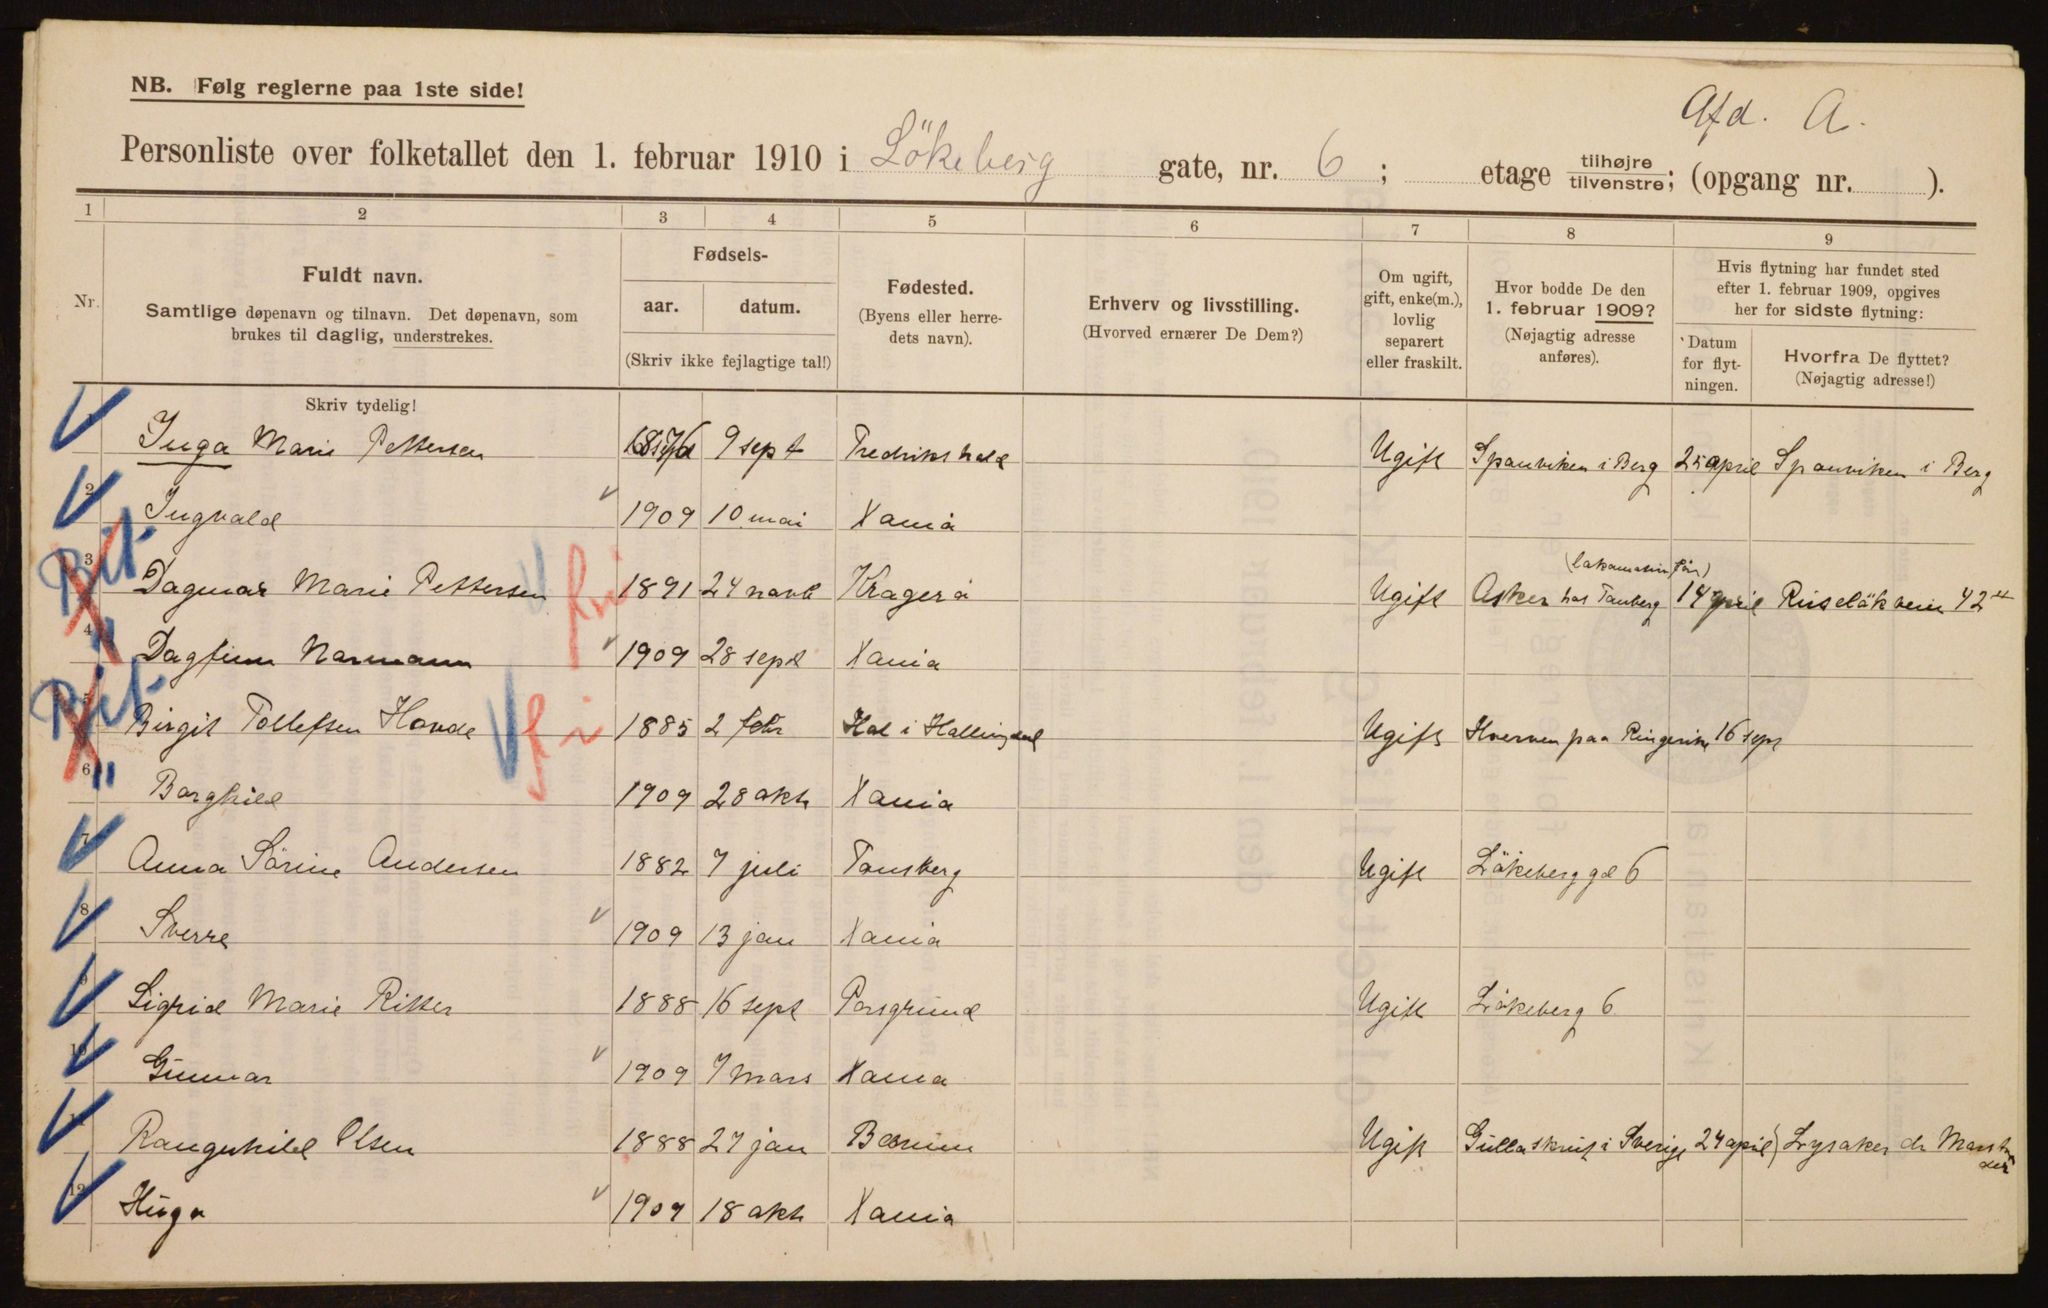 NB. Følg reglerne paa 1ste side!
Afd. A.
Personliste over folketallet den 1. februar 1910 i Lökeberg gate, nr. 6 ; etage tilhøjre/tilvenstre; (opgang nr. ).
1 2 3 4 5 6 7 8 9
Nr.
Fuldt navn.
Samtlige døpenavn og tilnavn. Det døpenavn, som
brukes til daglig, understrekes.
Fødsels-
aar. datum.
(Skriv ikke fejlagtige tal!)
Fødested.
(Byens eller herre-
dets navn).
Erhverv og livsstilling.
(Hvorved ernærer De Dem?)
Om ugift,
gift, enke(m.),
lovlig
separert
eller fraskilt.
Hvor bodde De den
1. februar 1909?
(Nøjagtig adresse
anføres).
Hvis flytning har fundet sted
efter 1. februar 1909, opgives
her for sidste flytning:
Datum
for flyt-
ningen.
Hvorfra De flyttet?
(Nøjagtig adresse!)
Skriv tydelig!
1 Inga Marie Pettersen 9 sept Fredrikshald Ugift Spanviken i Berg 25 april Spanviken i Berg
2 Ingvald 1909 10 mai Xania
3 Dagmar Marie Pettersen fri 1891 24 novb Kragerö Ugift Asker hos Tanberg 14 april Ruselökvein 42
4 " Dagfinn Normann 1909 28 sept Xania
5 Birgit Tollefsen Hovde fri 1885 2 febr Hol i Hallingdal Ugift Hverven paa Ringerike 16 sept
6 " Borghild 1909 28 okt Xania
7 Anna Sörine Andersen 1882 7 juli Tønsberg Ugift Lökeberg gd 6
8 Sverre 1909 13 jan Xania
9 Sigrid Marie Ritter 1888 16 sept Porsgrund Ugift Lökeberg 6
10 Gunnar 1909 7 mars Xania
11 Rangnhild Olsen 1888 27 jan Bærum Ugift Gullaskruf i Sverige 24 april Lysaker dr
12 Hugo 1909 18 okt Xania